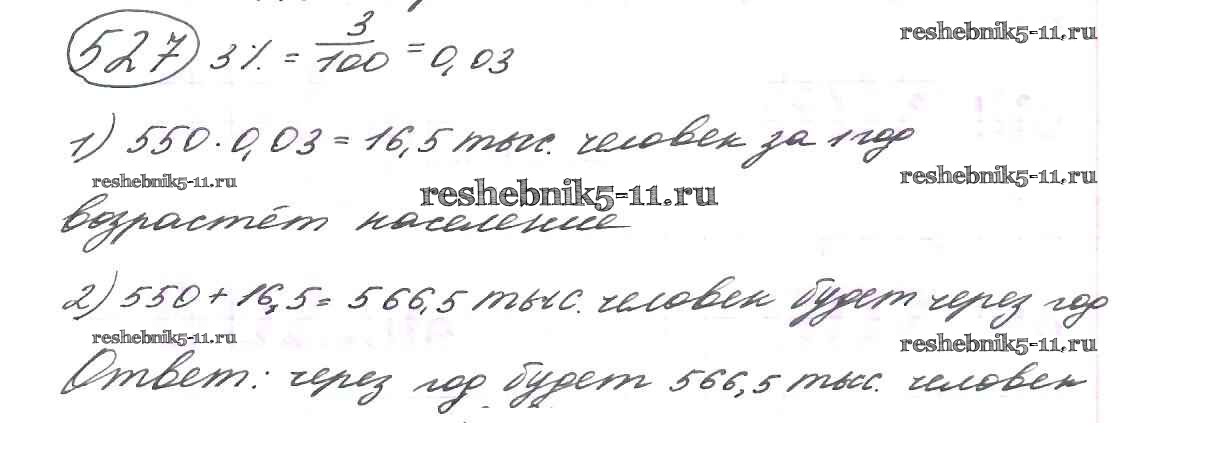 527 3% = 3/100 = 0,03
reshebnik5-11.ru
1) 550 · 0,03 = 16,5 тыс. человек за 1 год
reshebnik5-11.ru
reshebnik5-11.ru
reshebnik5-11.ru
возрастёт население
2) 550 + 16,5 = 566,5 тыс. человек будет через год
reshebnik5-11.ru
reshebnik5-11.ru
Ответ: через год будет 566,5 тыс. человек